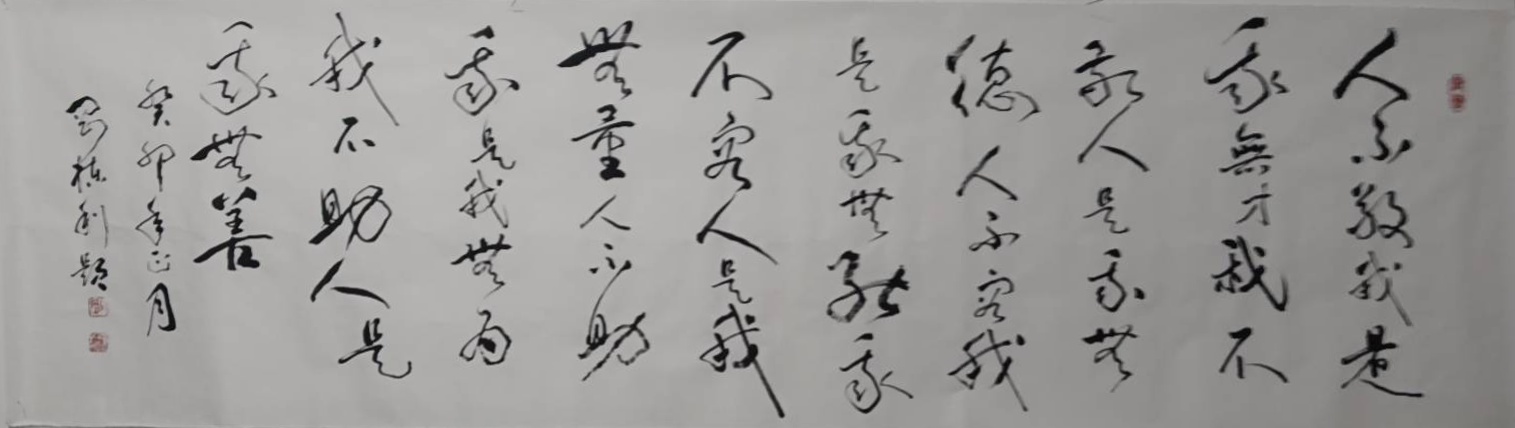 人不敬我是
我無才我不
敬人是我無
德人不容我
是我無能我
不容人是我
無量人不助
我是我無為
我不助人是
我無善
癸卯年正月
栋利题